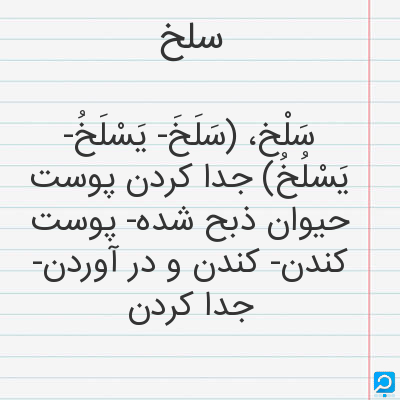 سلخ
سَلْخ، (سَلَخَ- یَسْلَخُ-
یَسْلُخُ) جدا کردن پوست
حیوان ذبح شده- پوست
کندن- کندن و در آوردن-
جدا کردن